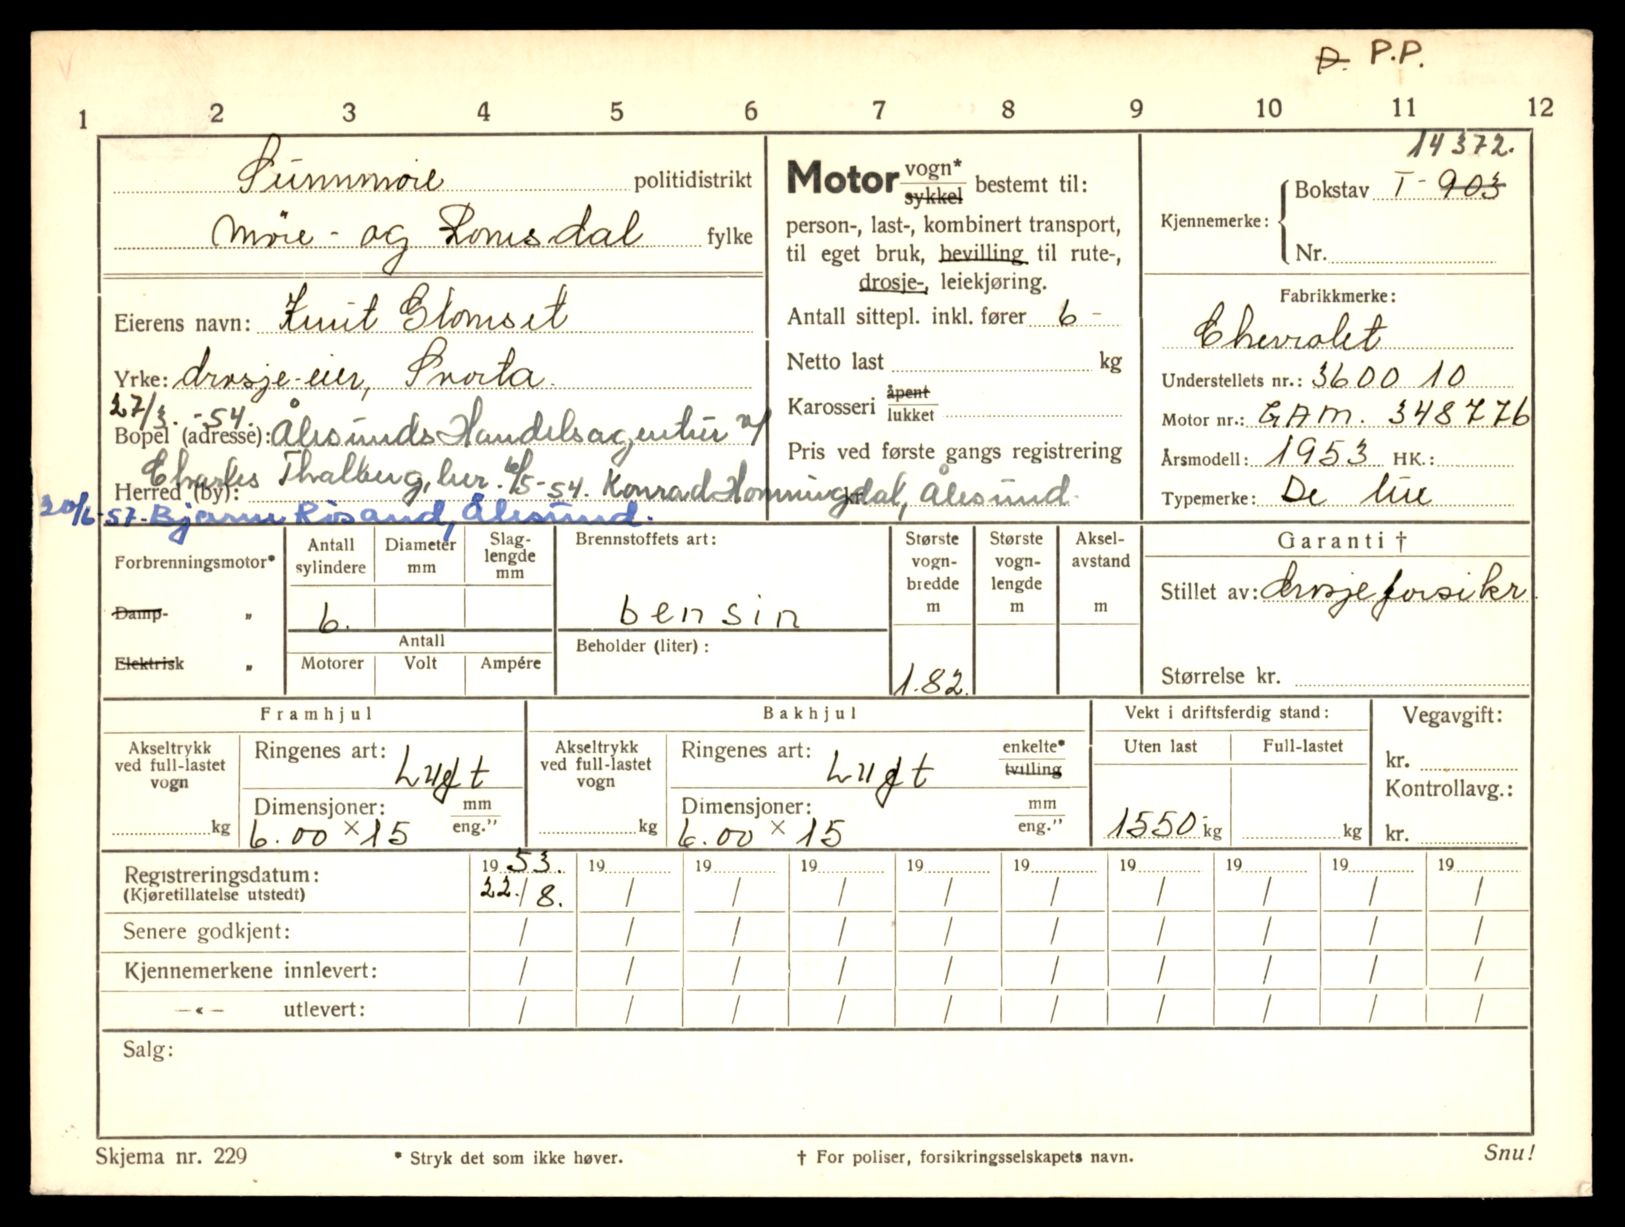 D. P.P.
1 2 3 4 5 6 7 8 9 10 11 12
Sunnmøre politidistrikt
Møre- og Romsdal fylke
Eierens navn: Knut Glomset
Yrke: drosje-eier, Snorta.
27/3. -54.
Bopel (adresse): Ålesunds Handelsagentur v/
Charles Thalberg, her. 6/5-54. Konrad Hornningdal, Ålesund.
Herred (by):
20/6-57. Bjarne Risand, Ålesund.
Motor vogn*
sykkel bestemt til:
person-, last-, kombinert transport,
til eget bruk, bevilling til rute-,
drosje-, leiekjøring.
Antall sittepl. inkl. fører 6 -
Netto last kg
Karosseri åpent
lukket
Pris ved første gangs registrering
kr.
14372.
Kjennemerke: Bokstav T- 903
Nr.
Fabrikkmerke:
Chevrolet
Understellets nr.: 3600 10
Motor nr.: GAM. 348776
Årsmodell: 1953 HK.:
Typemerke: De lue
Forbrenningsmotor*
Damp- „
Elektrisk „
Antall sylindere
6.
Diameter mm
Slag-lengde mm
Antall
Motorer Volt Ampére
Brennstoffets art:
bensin
Beholder (liter):
Største vogn-bredde m
1.82.
Største vogn-lengde m
Aksel-avstand m
Garanti †
Stillet av: drosjeforsikr.
Størrelse kr.
Framhjul
Akseltrykk ved full-lastet vogn
kg
Ringenes art: Luft
Dimensjoner: mm
6.00 × 15 eng.”
Bakhjul
Akseltrykk ved full-lastet vogn
kg
Ringenes art: Luft enkelte*
tvilling
Dimensjoner: mm
6.00 × 15 eng.”
Vekt i driftsferdig stand:
Uten last Full-lastet
1550 kg kg
Vegavgift:
kr.
Kontrollavg.:
kr.
Registreringsdatum: 19 53. 19 19 19 19 19 19 19 19 19
(Kjøretillatelse utstedt) 22./8. / / / / / / / / /
Senere godkjent: / / / / / / / / / /
Kjennemerkene innlevert: / / / / / / / / / /
—«— utlevert: / / / / / / / / / /
Salg:
Skjema nr. 229 * Stryk det som ikke høver. † For poliser, forsikringsselskapets navn. Snu!